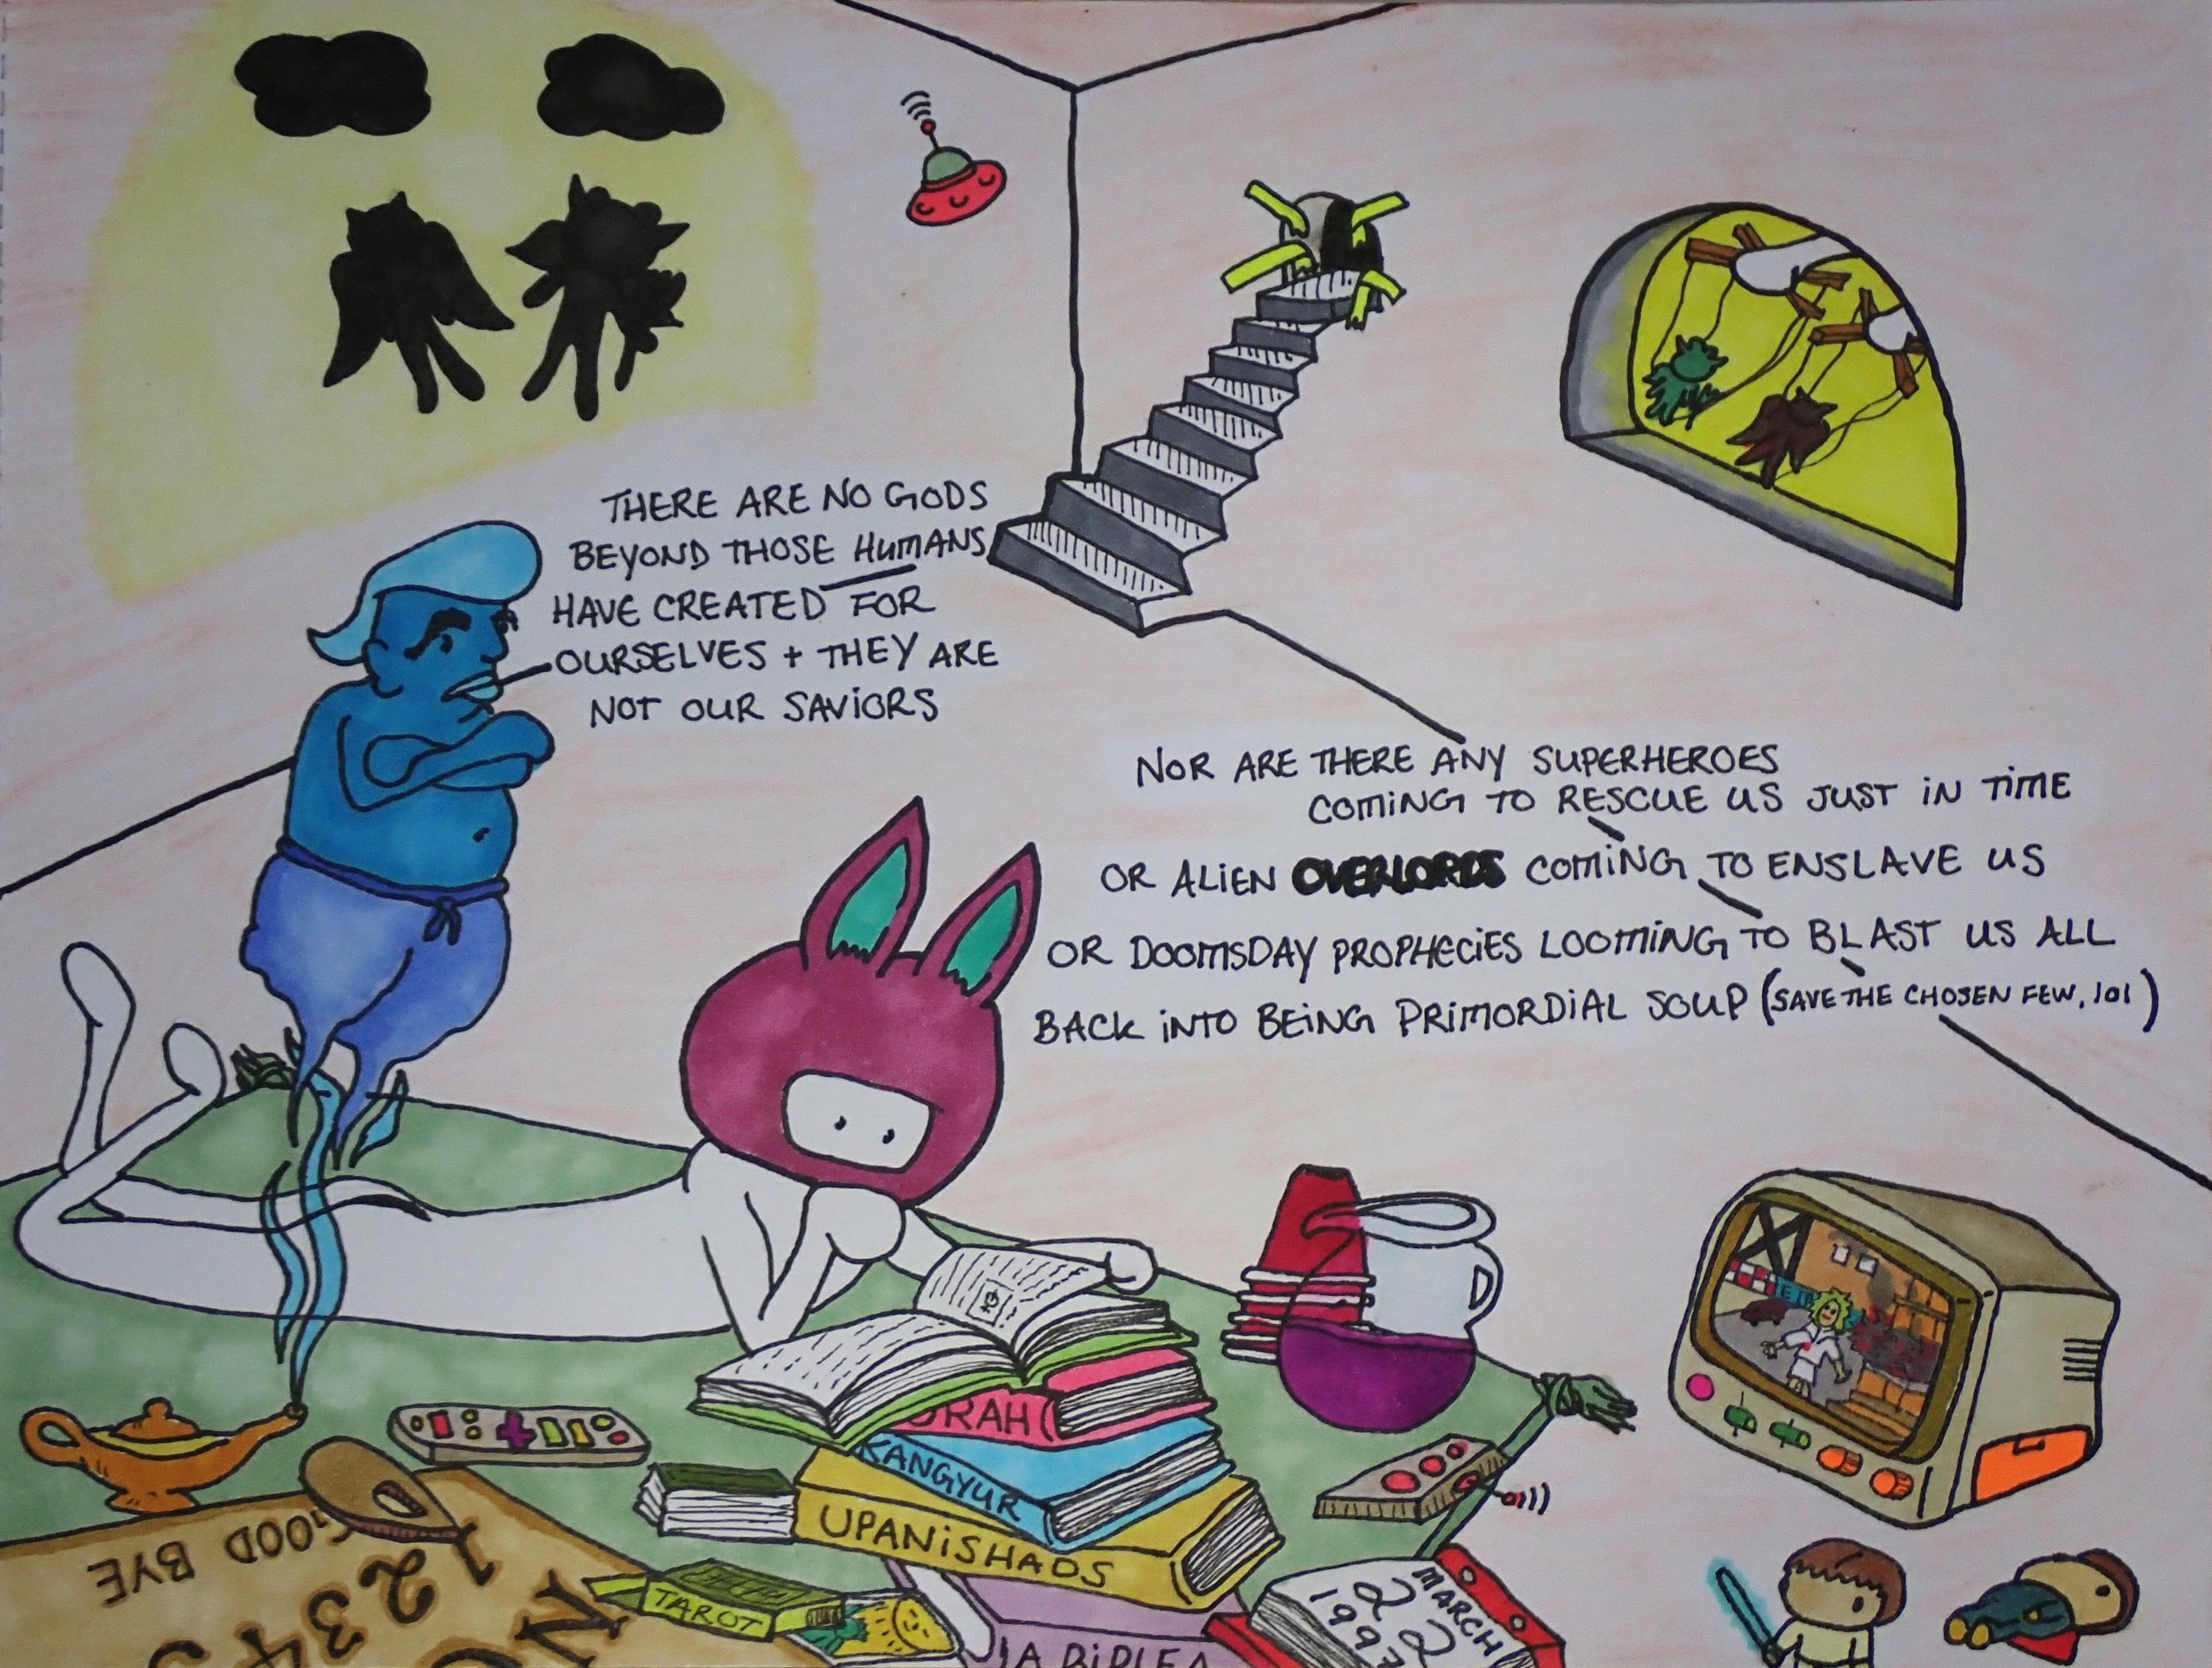 THERE ARE NO GODS
BEYOND THOSE HUMANS
HAVE CREATED FOR
OURSELVES + THEY ARE
NOT OUR SAVIORS
NOR ARE THERE ANY SUPERHEROES
COMING TO RESCUE US JUST IN TIME
OR ALIEN OVERLORDS COMING TO ENSLAVE US
OR DOOMSDAY PROPHECIES LOOMING TO BLAST US ALL
BACK INTO BEING PRIMORDIAL SOUP (SAVE THE CHOSEN FEW, lol)
ORAH
KANGYUR
UPANISHADS
TAROT
LA BIBLE
GOOD BYE
1 2 3 4 5
NO
MARCH
22
1997